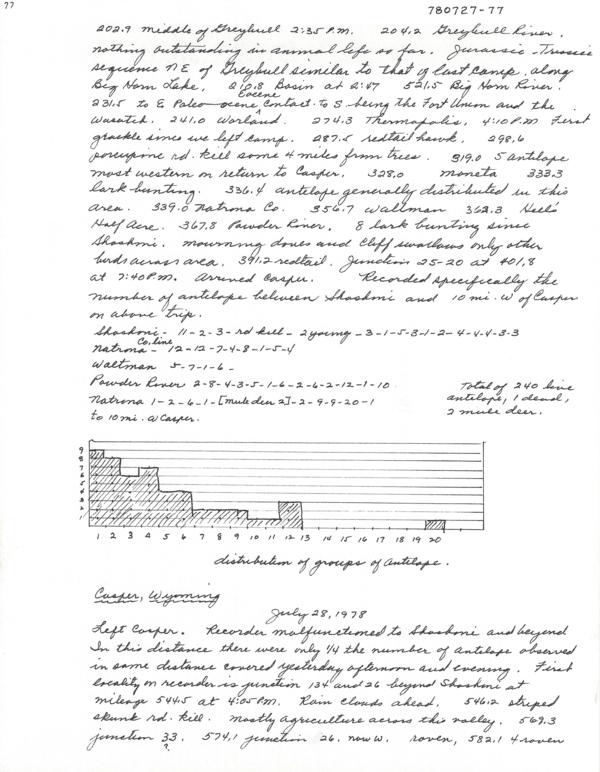 77
780727-77
202.9 middle of Greybull 2:35 P.M. 204.2 Greybull River.
nothing outstanding in animal life so far. Jurassic-Triassic
sequence NE of Greybull similar to that of last camp, along
Big Horn Lake, 210.8 Basin at 2:47 521.5 Big Horn River.
231.5 to E Paleo-ocene Eocene contact. To S. being the Fort Union and the
Wasatch. 241.0 Worland. 274.3 Thermopolis, 4:10 P.M. First
grackle since we left camp. 287.5 redtail hawk. 298.6
porcupine rd. kill some 4 miles from trees. 319.0 5 antelope
most western on return to Casper. 328.0 moneta 333.3
lark bunting. 336.4 antelope generally distributed in this
area. 339.0 Natrona Co. 356.7 Waltman 362.3 Hell's
Half Acre. 367.8 Powder River. 8 lark bunting since
Shoshoni. mourning doves and Cliff swallows only other
birds across area. 391.2 redtail. Junction 25-20 at 401.8
at 7:40 P.M. Arrived Casper. Recorded specifically the
number of antelope between Shoshoni and 10 mi. W of Casper
on above trip.
Shoshoni - 11-2-3- rd kill - 2 young - 3-1-5-3-1-2-4-4-4-3-3
Natrona Co. line - 12-12-7-4-8-1-5-4
Waltman 5-7-1-6-
Powder River 2-8-4-3-5-1-6-2-6-2-12-1-10
Natrona 1-2-6-1-[mule deer 2]-2-9-9-20-1
to 10 mi. W Casper.
Total of 240 live
antelope, 1 dead,
2 mule deer.
9
8
7
6
5
4
3
2
1
1 2 3 4 5 6 7 8 9 10 11 12 13 14 15 16 17 18 19 20
distribution of groups of Antelope.
Casper, Wyoming
July 28, 1978
Left Casper. Recorder malfunctioned to Shoshoni and beyond
In this distance there were only 1/4 the number of Antelope observed
in same distance covered yesterday afternoon and evening. First
locality on recorder is junction 134 and 26 beyond Shoshoni at
mileage 544.5 at 4:05 P.M. Rain clouds ahead. 546.2 striped
skunk rd. kill. mostly agriculture across this valley. 569.3
junction 33. 574.1 junction 26. now W. roven, 582.1 4 roven
?